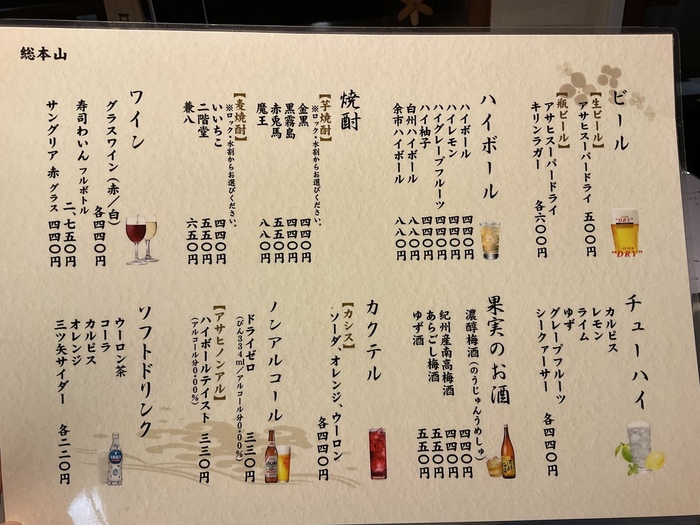 総本山
ビール
【生ビール】
アサヒスーパードライ 五〇〇円
【瓶ビール】
アサヒスーパードライ
キリンラガー 各六〇〇円
ハイボール
ハイボール 四四〇円
ハイレモン 四四〇円
ハイグレープフルーツ 四四〇円
ハイ柚子 四四〇円
白州ハイボール 八八〇円
余市ハイボール 八八〇円
焼酎
【芋焼酎】
※ロック・水割からお選びください。
金黒 四四〇円
黒霧島 四四〇円
赤兎馬 五五〇円
魔王 八八〇円
【麦焼酎】
※ロック・水割からお選びください。
いいちこ 四四〇円
二階堂 五五〇円
兼八 六五〇円
ワイン
グラスワイン(赤/白) 各四四〇円
寿司わいん フルボトル 二、七五〇円
サングリア 赤 グラス 四四〇円
チューハイ
カルピス
レモン
ライム
ゆず
グレープフルーツ
シークァーサー 各四四〇円
果実のお酒
濃醇梅酒(のうじゅんうめしゅ) 四四〇円
紀州産南高梅酒 四四〇円
あらごし梅酒 五五〇円
ゆず酒 五五〇円
カクテル
【カシス】
ソーダ、オレンジ、ウーロン 各四四〇円
ノンアルコール
ドライゼロ 三三〇円
(びん334ml/アルコール分0.00%)
【アサヒノンアル】
ハイボールテイスト 三三〇円
(アルコール分0.00%)
ソフトドリンク
ウーロン茶
コーラ
カルピス
オレンジ
三ツ矢サイダー 各二二〇円
"DRY"